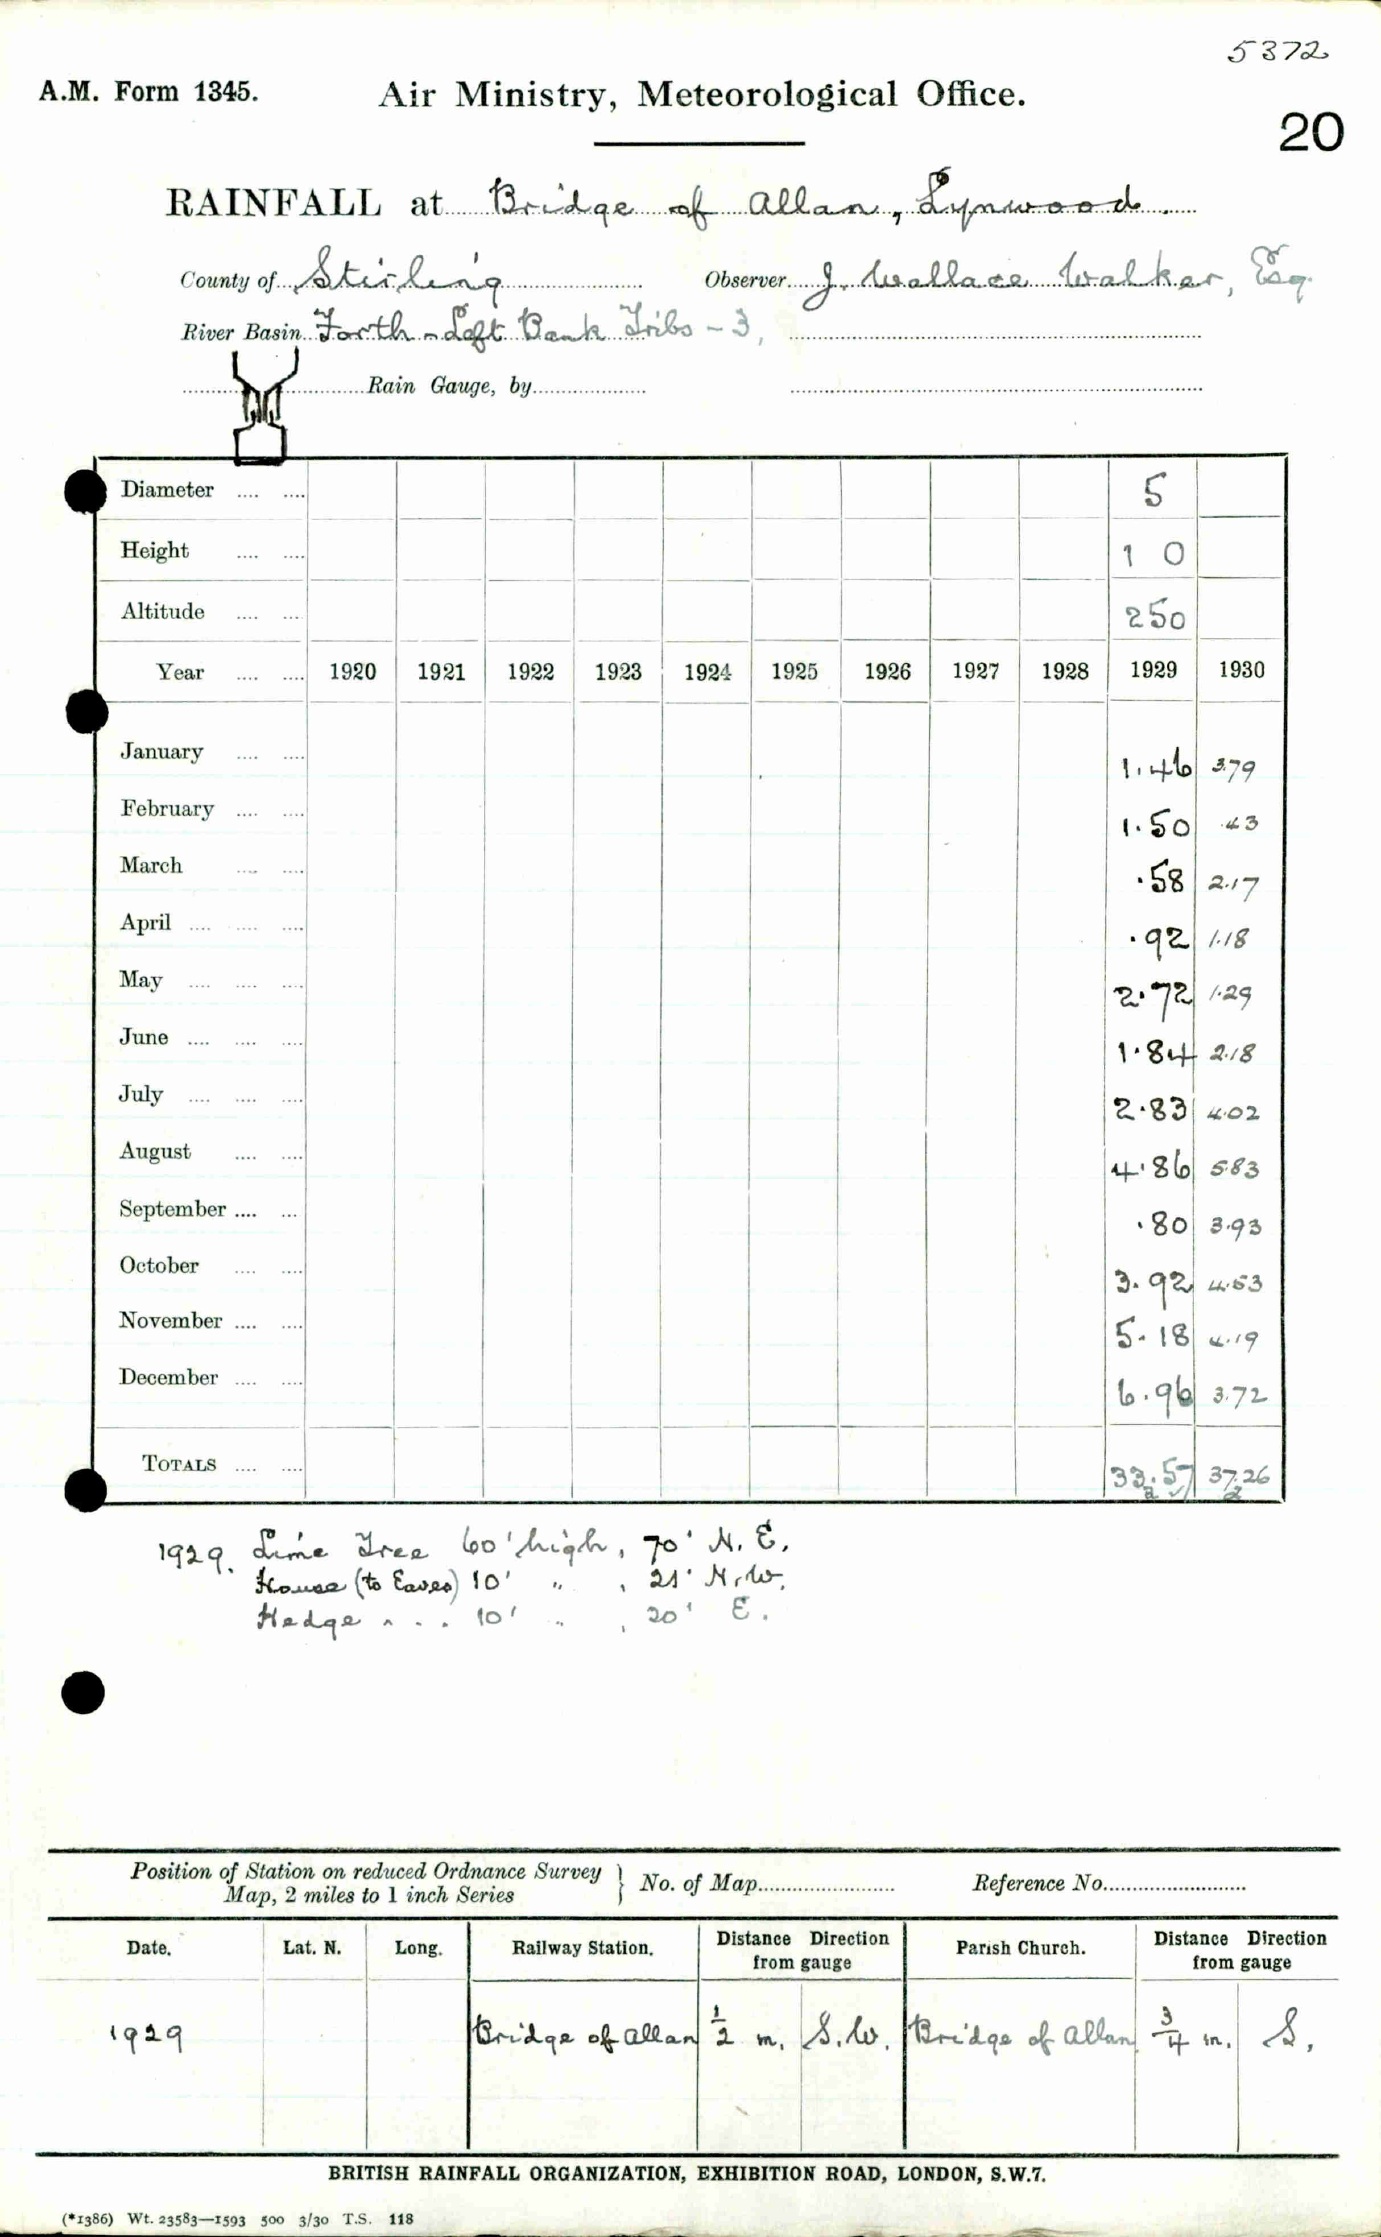 5372
A.M. Form 1345. Air Ministry, Meteorological Office.
20
RAINFALL at Bridge of Allan, Lynwood.
County of Stirling Observer J. Wallace Walker, Esq.
River Basin Forth - Left Bank Tribs - 3,
Rain Gauge, by
Diameter .... .... 5
Height .... .... 1 0
Altitude .... .... 250
Year .... .... 1920 1921 1922 1923 1924 1925 1926 1927 1928 1929 1930
January .... .... 1.46 3.79
February .... .... 1.50 .43
March .... .... .58 2.17
April .... .... .... .92 1.18
May .... .... .... 2.72 1.29
June .... .... .... 1.84 2.18
July .... .... .... 2.83 4.02
August .... .... 4.86 5.83
September .... .... .80 3.93
October .... .... 3.92 4.53
November .... .... 5.18 4.19
December .... .... 6.96 3.72
TOTALS .... .... 33.57 37.26
1929. Lime Tree 60' high, 70' N.E.
House (to Eaves) 10' " , 21' N.W.
Hedge . . . 10' " , 20' E.
Position of Station on reduced Ordnance Survey
Map, 2 miles to 1 inch Series } No. of Map Reference No.
Date. Lat. N. Long. Railway Station. Distance Direction from gauge Parish Church. Distance Direction from gauge
1929 Bridge of Allan 1/2 m. S.W. Bridge of Allan 3/4 m. S.
BRITISH RAINFALL ORGANIZATION, EXHIBITION ROAD, LONDON, S.W.7.
(*1386) Wt. 23583—1593 500 3/30 T.S. 118